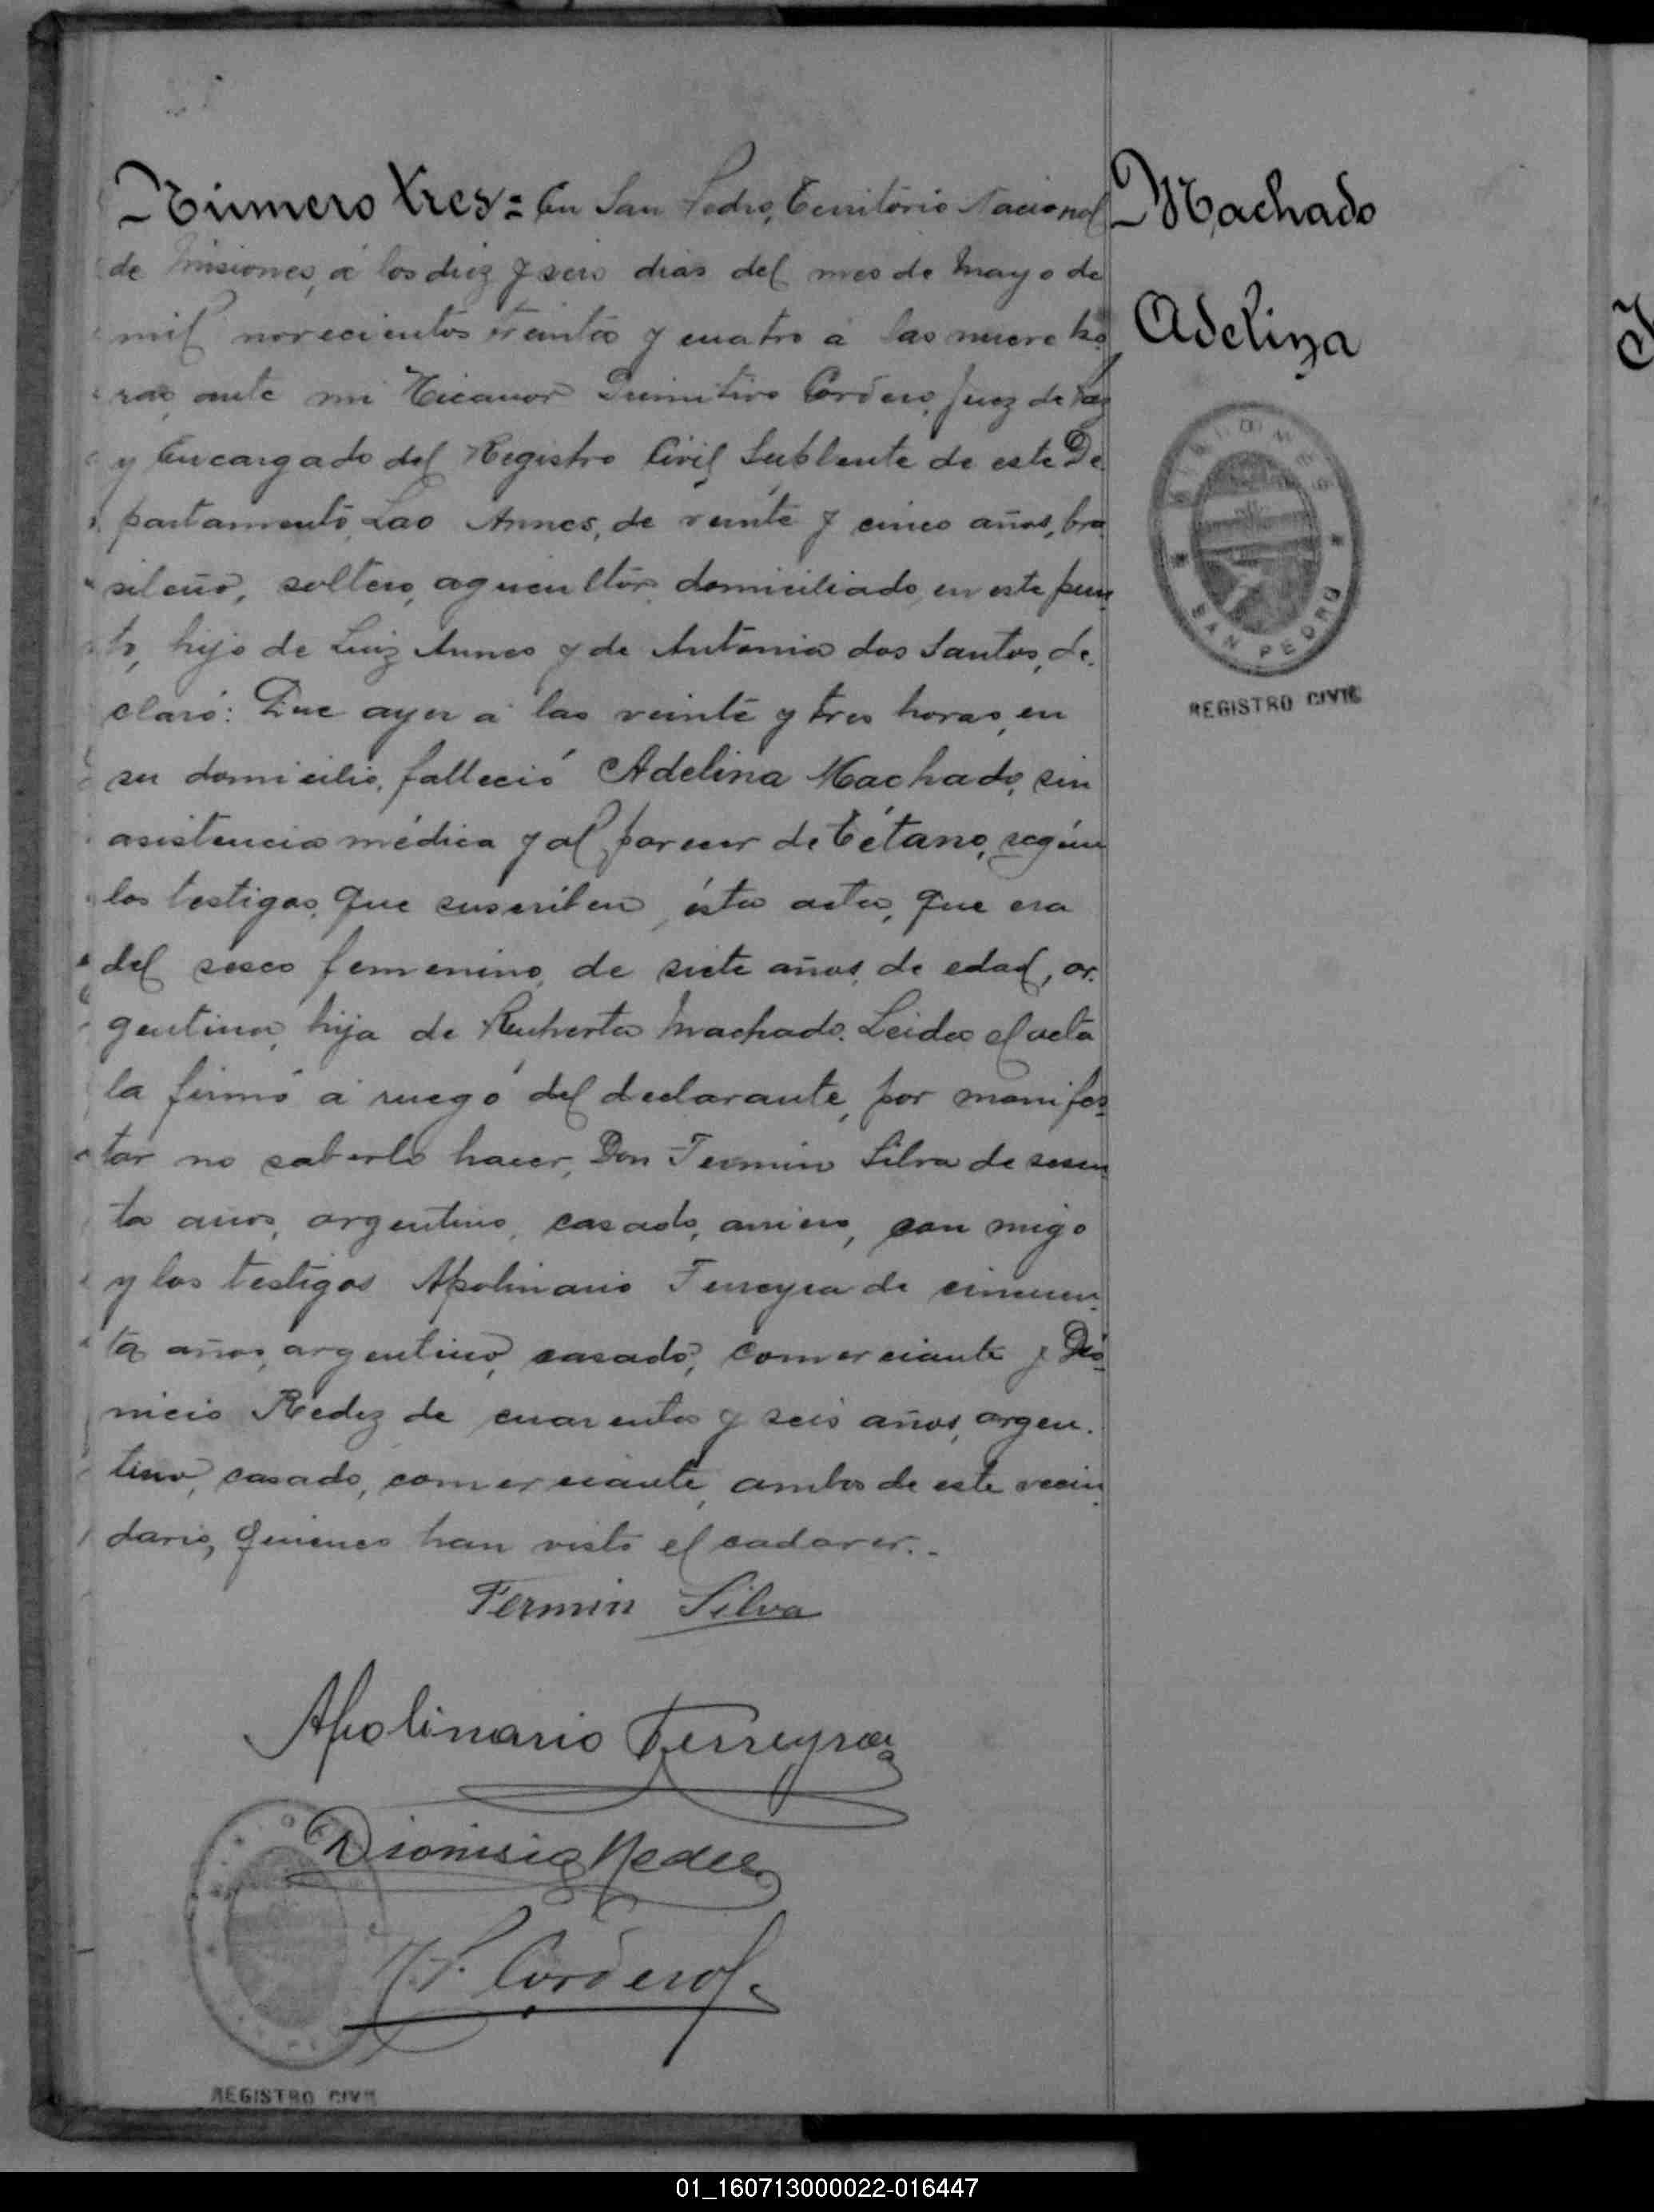 Número tres = En San Pedro, Territorio Nacional
de Misiones, á los diez y seis dias del mes de Mayo de
mil novecientos treinta y cuatro á las nueve ho-
ras, ante mi Nicanor Primitivo Cordero, Juez de Paz
y Encargado del Registro Civil Suplente de este De-
partamento, Lao Annes, de veinte y cinco años, bra-
sileño, soltero, agricultor domiciliado, en este pun-
to, hijo de Luiz Annes y de Antonia dos Santos, de-
claró: Que ayer á las veinte y tres horas, en
su domicilio, falleció Adelina Machado, sin
asistencia médica y al parecer de Tétano, según
los testigos que suscriben ésta acta, que era
del sexo femenino, de siete años de edad, ar-
gentina, hija de Ruherta Machado. Leida el acta
la firmó á ruego del declarante, por manifes-
tar no saberlo hacer, Don Fermin Silva de sesen-
ta años, argentino, casado, arriero, con migo
y los testigos Apolinario Ferreyra de cincuen-
ta años, argentino, casado, comerciante y Dio-
nicio Redez de cuarenta y seis años, argen-
tino, casado, comerciante, ambos de este vecin-
dario, quienes han visto el cadaver.-
Fermin Silva
Apolinario Ferreyra
Dionisio Redez
N. P. Cordero
REGISTRO CIVIL
Machado
Adelina
MISIONES
* *
SAN PEDRO
REGISTRO CIVIL
01_160713000022-016447